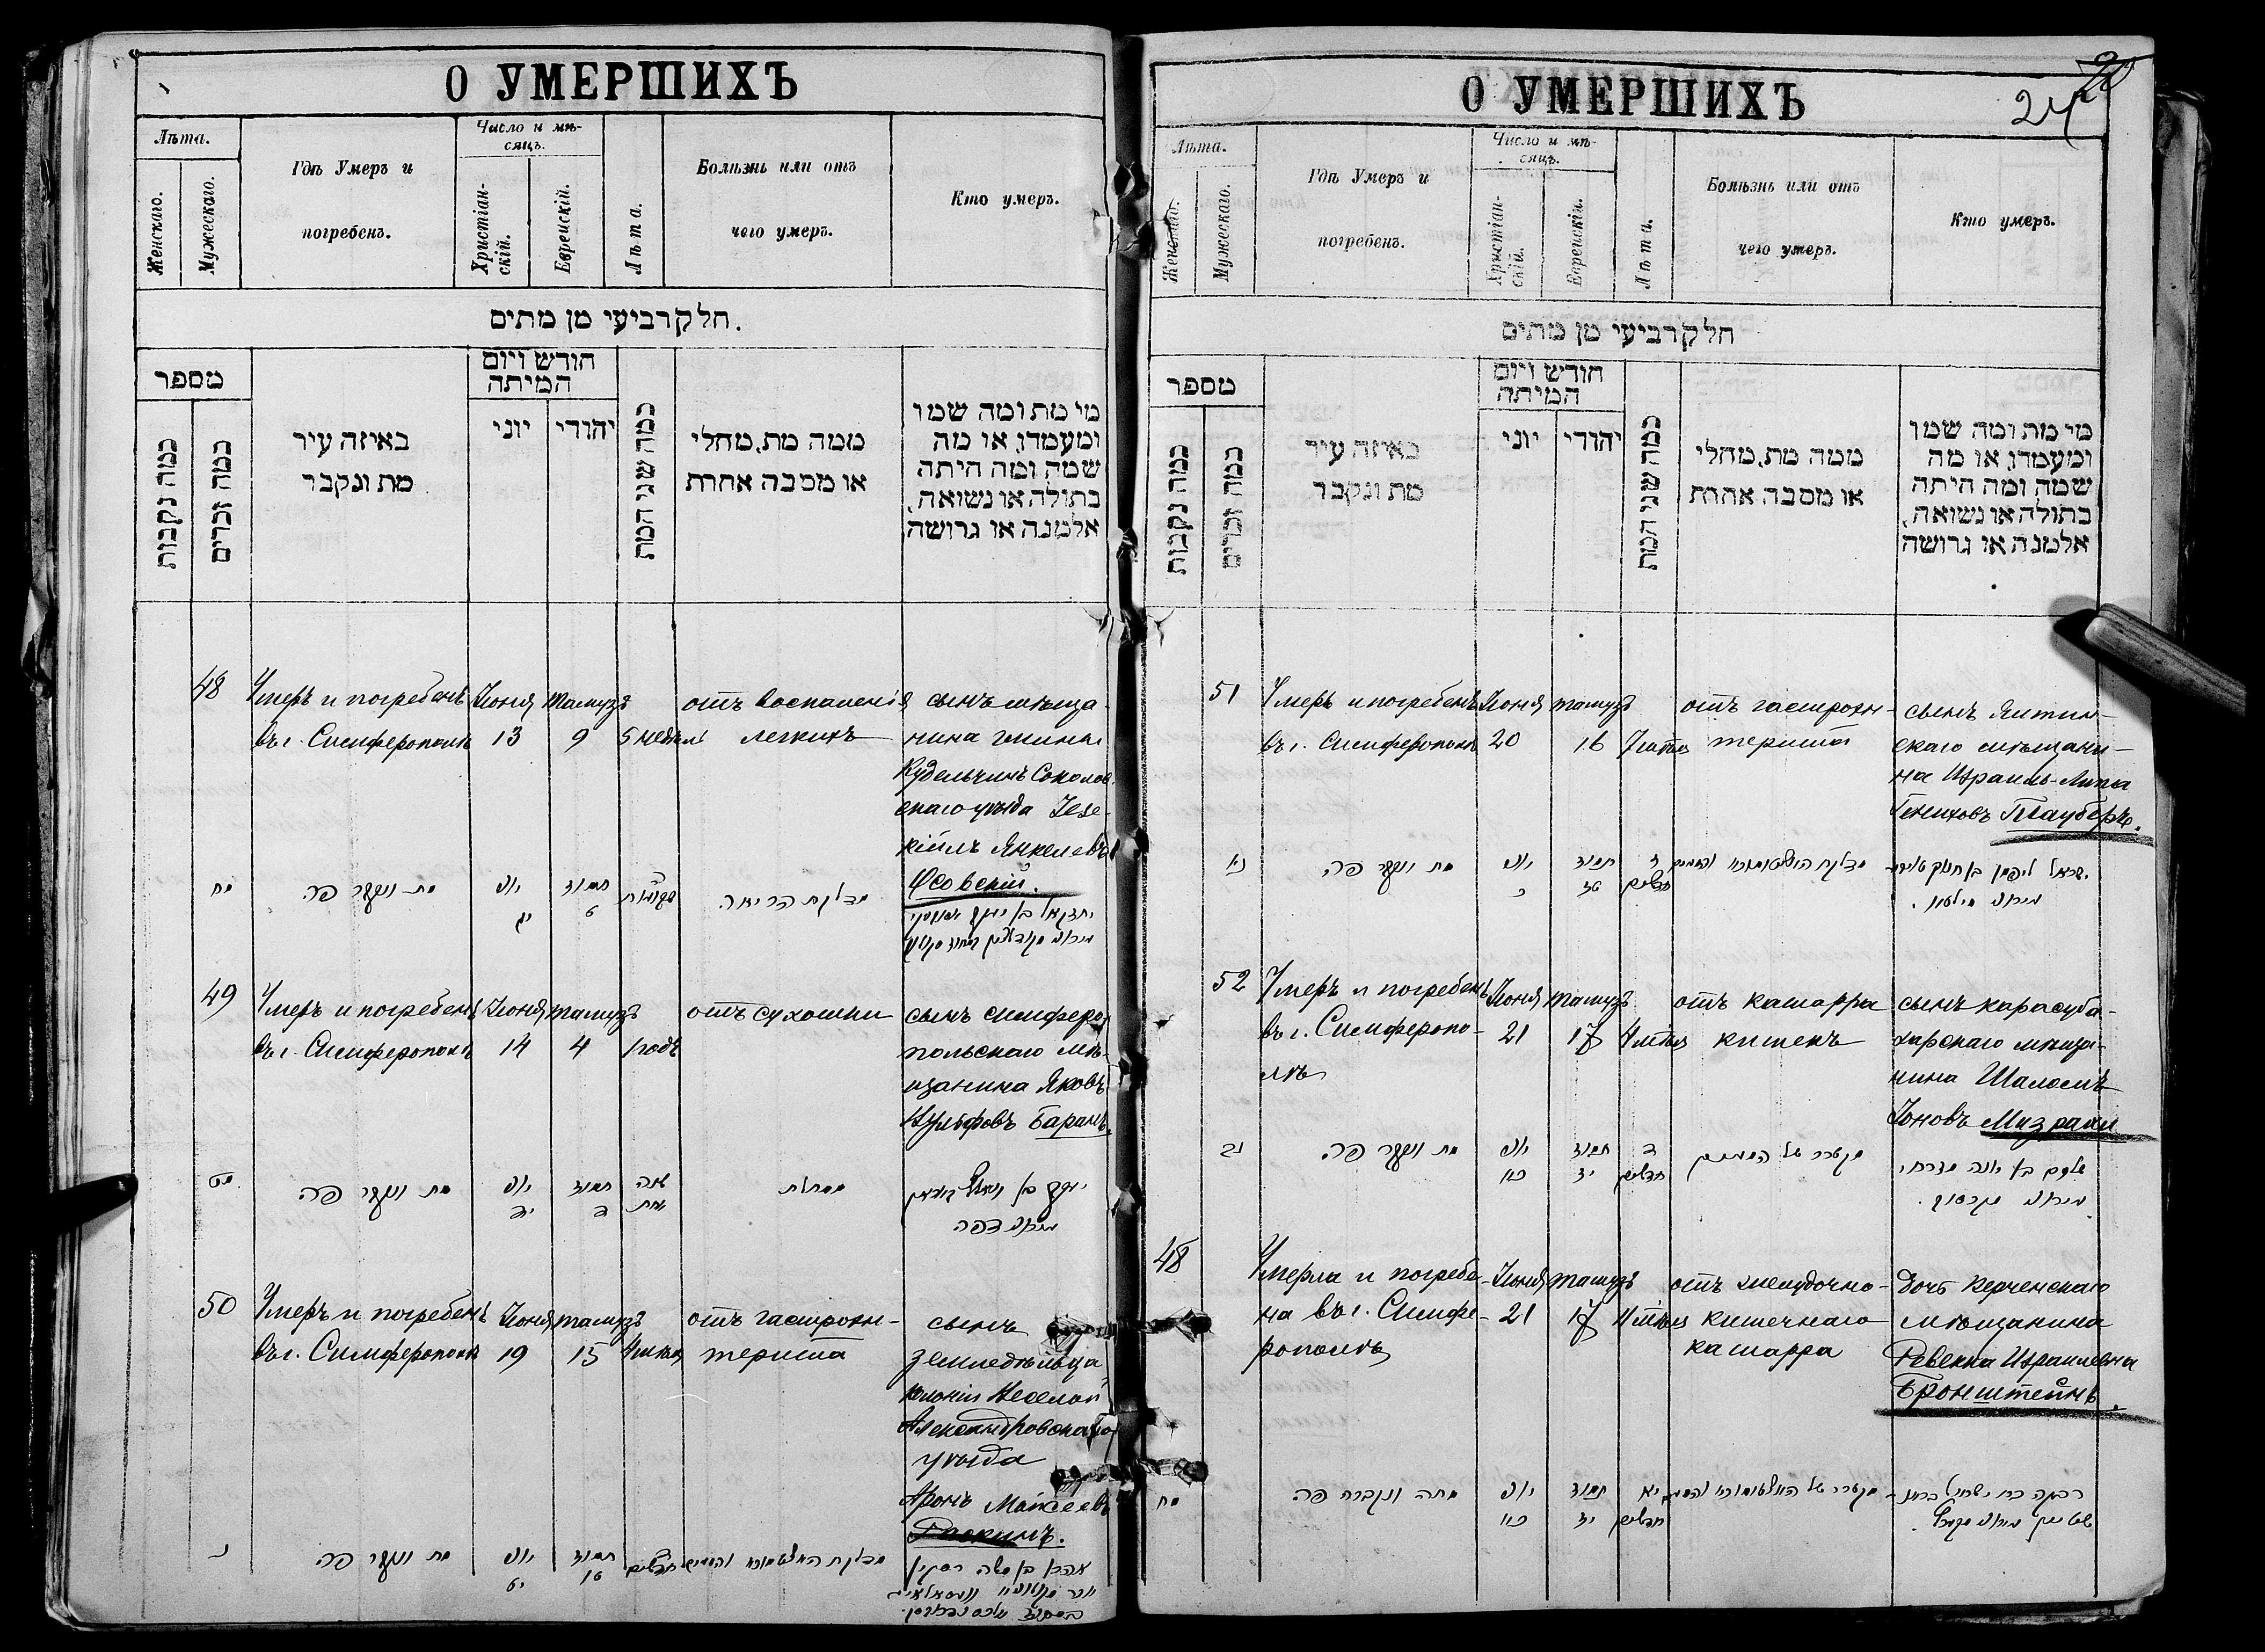 О УМЕРШИХЪ
Лѣта.
Женскаго.
Мужескаго.
Гдѣ Умеръ и
погребенъ.
Число и мѣ-
сяцъ.
Христіан-
скій.
Еврейскій.
Лѣта.
Болѣзнь или отъ
чего умеръ.
Кто умеръ.
חלק רביעי מן מתים.
מספר
כמה נקבות
כמה זכרים
באיזה עיר
מת ונקבר
חודש ויום
המיתה
יוני
יהודי
כמה שני המת
ממה מת, מחלי
או מסבה אחרת
מי מת ומה שמו
ומעמדו, או מה
שמה ומה היתה
בתולה או נשואה,
אלמנה או גרושה
48
Умеръ и погребенъ
въ г. Симферополѣ
Іюня
13
Тамузъ
9
5 недѣль
отъ воспаленія
легкихъ
сынъ мѣща-
нина
Соколов
скаго уѣзда Іезе-
кіиль Янкелевъ
Осовскій.
מח
מת ונקבר פה
יוני
יג
תמוז
ט
ה
מדלקת הריאה
יחזקאל בן יעקב
49
Умеръ и погребенъ
въ г. Симферополѣ
Іюня
14
Тамузъ
4
1 годъ
отъ сухотки
сынъ симферо
польскаго мѣ-
щанина Яковъ
Баранъ.
מט
מת ונקבר פה
יוני
יד
תמוז
ד
שנה
אחת
יעקב בן
50
Умеръ и погребенъ
въ г. Симферополѣ
Іюня
19
Тамузъ
15
отъ гастроэн-
терита
сынъ
земледѣльца
колоніи Веселой
Александровскаго
уѣзда
Аронъ Моисеевъ
Раскинъ.
נ
מת ונקבר פה
יוני
יט
תמוז
טו
אהרן בן משה רסקין
О УМЕРШИХЪ
24
Лѣта.
Женскаго.
Мужескаго.
Гдѣ Умеръ и
погребенъ.
Число и мѣ-
сяцъ.
Христіан-
скій.
Еврейскій.
Лѣта.
Болѣзнь или отъ
чего умеръ.
Кто умеръ.
חלק רביעי מן מתים
מספר
כמה נקבות
כמה זכרים
באיזה עיר
מת ונקבר
חודש ויום
המיתה
יוני
יהודי
כמה שני המת
ממה מת, מחלי
או מסבה אחרת
מי מת ומה שמו
ומעמדו, או מה
שמה ומה היתה
בתולה או נשואה,
אלמנה או גרושה
51
Умеръ и погребенъ
въ г. Симферополѣ
Іюня
20
Тамузъ
16
отъ гастроэн-
терита
сынъ
скаго мѣщани-
на Израиль-Липа
Тауберъ.
נא
מת ונקבר פה
יוני
כ
תמוז
טז
ז
חדשים
ישראל ליפמן בן
52
Умеръ и погребенъ
въ г. Симферопо-
лѣ
Іюня
21
Тамузъ
17
отъ катарра
кишекъ
сынъ карасуба-
зарскаго мѣща-
нина Шаломъ
Іоновъ Мизрахи
נב
מת ונקבר פה.
יוני
כא
תמוז
יז
ד
חדשים
מקטרר של המעים
שלום בן יונה מזרחי
48
Умерла и погребе-
на въ г. Симфе-
рополѣ
Іюня
21
Тамузъ
17
отъ желудочно-
кишечнаго
катарра
дочь керченскаго
мѣщанина
Ревекка Израилевна
Бронштейнъ.
מח
מתה ונקברה פה
יוני
כא
תמוז
יז
יא
חדשים
רבקה בת ישראל ברונ-
שטיין